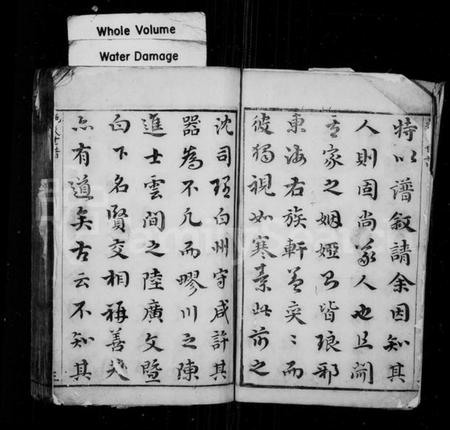 Whole Volume
Water Damage
特以譜敘請余因知其
人則固尚義人也且聞
其家之姻婭皆琅邪
東海右族軒蓋奕〻而
彼獨視如寒素此前之
沈司理白州守咸許其
器為不凡而膠川之陳
進士雲間之陸廣文暨
白下名賢交相稱善夫
亦有道矣古云不知其